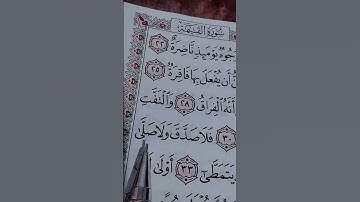 سُورَةُ القِيَامَةِ
جُوهٌ يَوْمَئِذٍ نَّاضِرَةٌ ٢٢
أَن يُفْعَلَ بِهَا فَاقِرَةٌ ٢٥
أَنَّهُ الْفِرَاقُ ٢٨ وَالْتَفَّتِ
٣٠ فَلَا صَدَّقَ وَلَا صَلَّىٰ
يَتَمَطَّىٰ ٣٣ أَوْلَىٰ